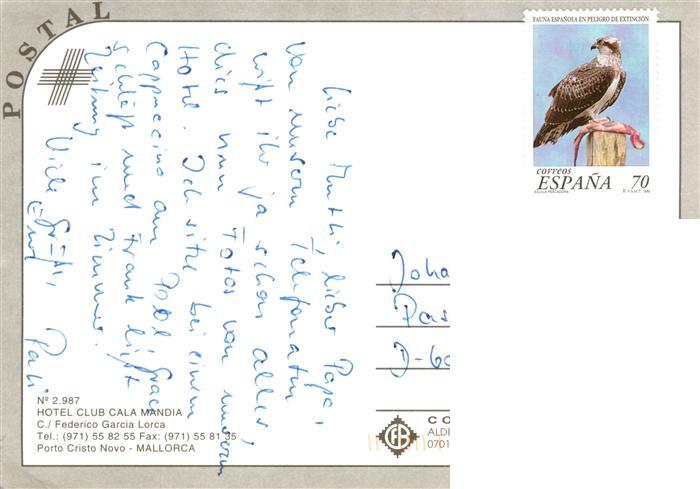 POSTAL
FAUNA ESPAÑOLA EN PELIGRO DE EXTINCIÓN
correos
ESPAÑA 70
AGUILA PESCADORA
Liebe Mutti, lieber Papa,
von unseren Telefonaten
wißt ihr ja schon alles,
dies nun Fotos von unserem
Hotel. Ich sitze bei einem
Cappuccino am Pool, Grace
schläft und Frank liest
Zeitung im Zimmer.
Viele Grüße,
Eure
Joha
Pas
D-60
Nº 2.987
HOTEL CLUB CALA MANDIA
C./ Federico Garcia Lorca
Tel.: (971) 55 82 55 Fax: (971) 55 81 35
Porto Cristo Novo - MALLORCA
CO
ALDE
0701